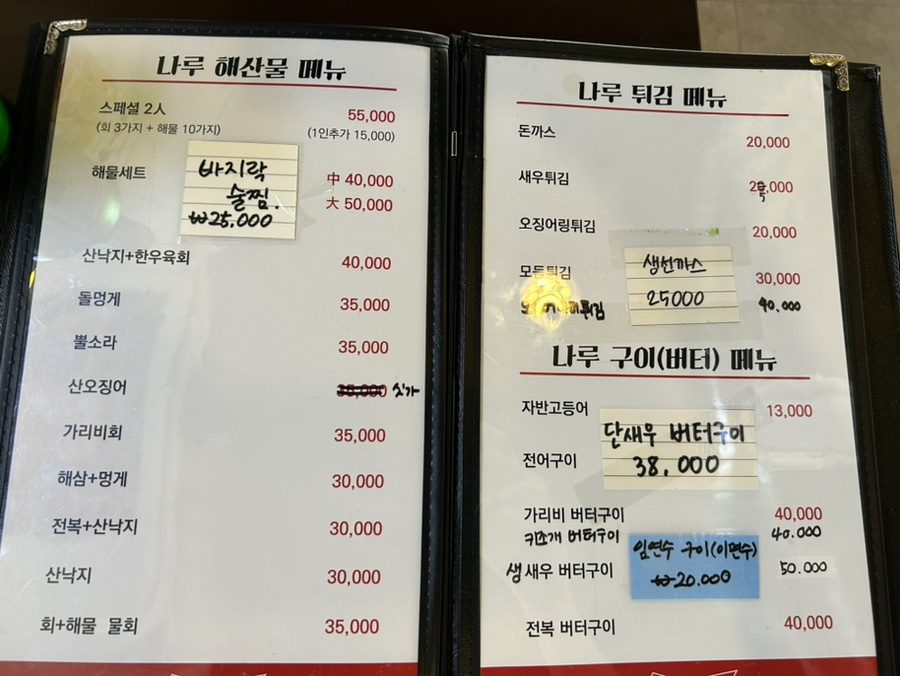 나루 해산물 메뉴
스페셜 2人 55,000
(회 3가지 + 해물 10가지) (1인추가 15,000)
해물세트 中 40,000
大 50,000
바지락
술찜.
₩25.000
산낙지+한우육회 40,000
돌멍게 35,000
뿔소라 35,000
산오징어 35,000 싯가
가리비회 35,000
해삼+멍게 30,000
전복+산낙지 30,000
산낙지 30,000
회+해물 물회 35,000
나루 튀김 메뉴
돈까스 20,000
새우튀김
오징어링튀김 20,000
모듬튀김 30,000
튀김 40.000
생선까스
25000
나루 구이(버터) 메뉴
자반고등어 13,000
전어구이
단새우 버터구이
38.000
가리비 버터구이 40,000
키조개 버터구이 40.000
생새우 버터구이 50.000
임연수 구이(이면수)
₩20.000
전복 버터구이 40,000